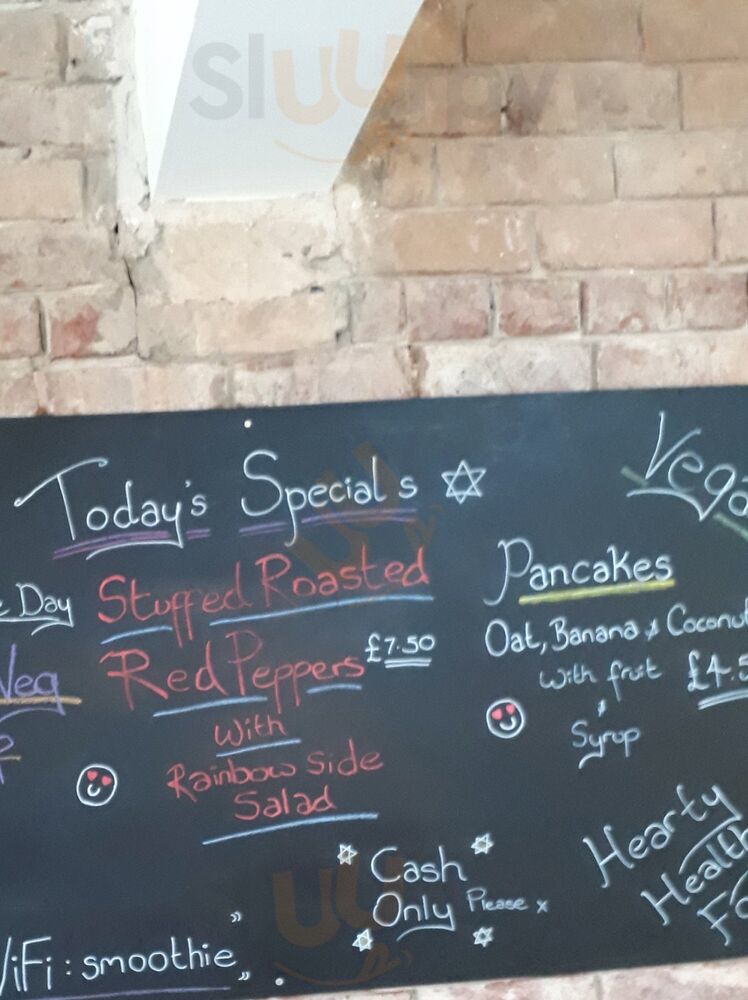 Today's Specials
Day
Stuffed Roasted
Red Peppers £7.50
With
Rainbow Side
Salad
Veg
Pancakes
Oat, Banana & Coconut
With fruit
&
Syrup
Cash
Only Please x
Hearty
WiFi: smoothie